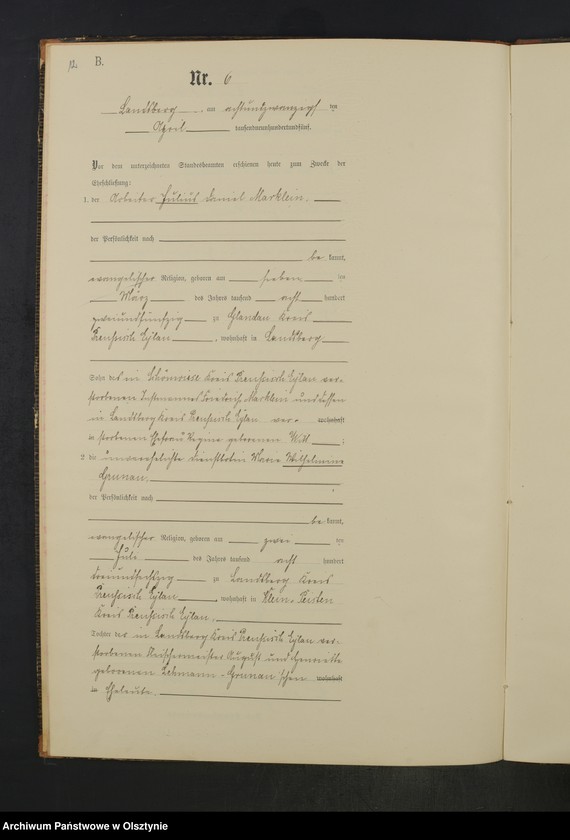 12. B.
Nr. 6
Landsberg, am achtundzwanzigsten
April tausendneunhundertundfünf.
Vor dem unterzeichneten Standesbeamten erschienen heute zum Zwecke der
Eheschließung:
1. der Arbeiter Julius Daniel Marklein.
der Persönlichkeit nach
be kannt,
evangelischer Religion, geboren am sieben ten
März des Jahres tausend acht hundert
zweiundfünfzig zu Glandau Kreis
Preußisch Eylau, wohnhaft in Landsberg
Sohn des in Schönwiese Kreis Preußisch Eylau ver-
storbenen Instmannes Friedrich Marklein und dessen
in Landsberg Kreis Preußisch Eylau ver- wohnhaft
in storbenen Ehefrau Regine geborenen Will;
2. die unverehelichte Dienstbotin Marie Wilhelmine
Grunau.
der Persönlichkeit nach
be kannt,
evangelischer Religion, geboren am zwei ten
Juli des Jahres tausend acht hundert
dreiundsechzig zu Landsberg Kreis
Preußisch Eylau, wohnhaft in Klein-Peisten
Kreis Preußisch Eylau.
Tochter der in Landsberg Kreis Preußisch Eylau ver-
storbenen Fleischermeister August und Henriette
geborenen Lehmann-Grunau'schen wohnhaft
in Eheleute.
Archiwum Państwowe w Olsztynie